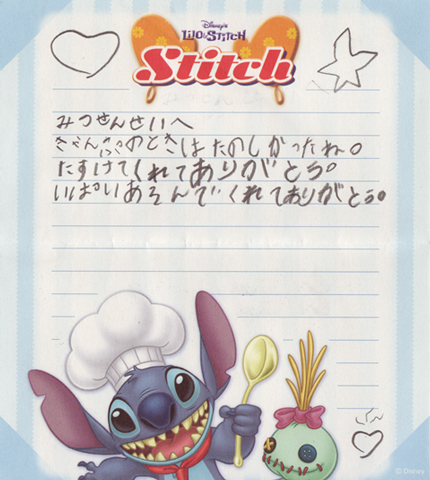 Disney's
LILO & STITCH
Stitch
みつせんせいへ
きゃんぷのときはたのしかったね。
たすけてくれてありがとう。
いぱいあそんでくれてありがとう。
© Disney